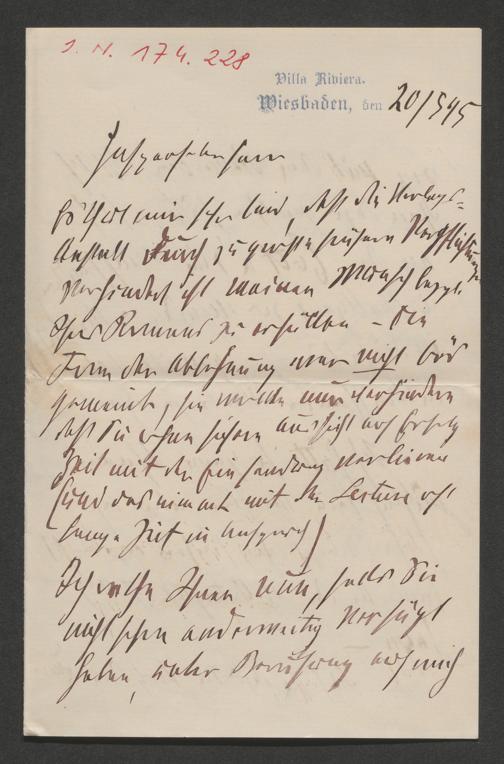 J. N. 174.228
Villa Riviera.
Wiesbaden, den 20/5 95
Es thut mir sehr leid, daß die Verlags-
Anstalt durch zu große frühere Verpflichtungen
verhindert ist meinen Wunsch bezgl.
Ihres Romans zu erfüllen – die
Form der Ablehnung war nicht bös
gemeint, sie wollte nur verhindern
daß Sie ohne sichere Aussicht auf Erfolg
Zeit mit der Einsendung verlieren
(und das nimmt mit der Lecture oft
lange Zeit in Anspruch)
Ich rathe Ihnen nun, falls Sie
nicht schon anderweitig verfügt
haben, unter Berufung auf mich